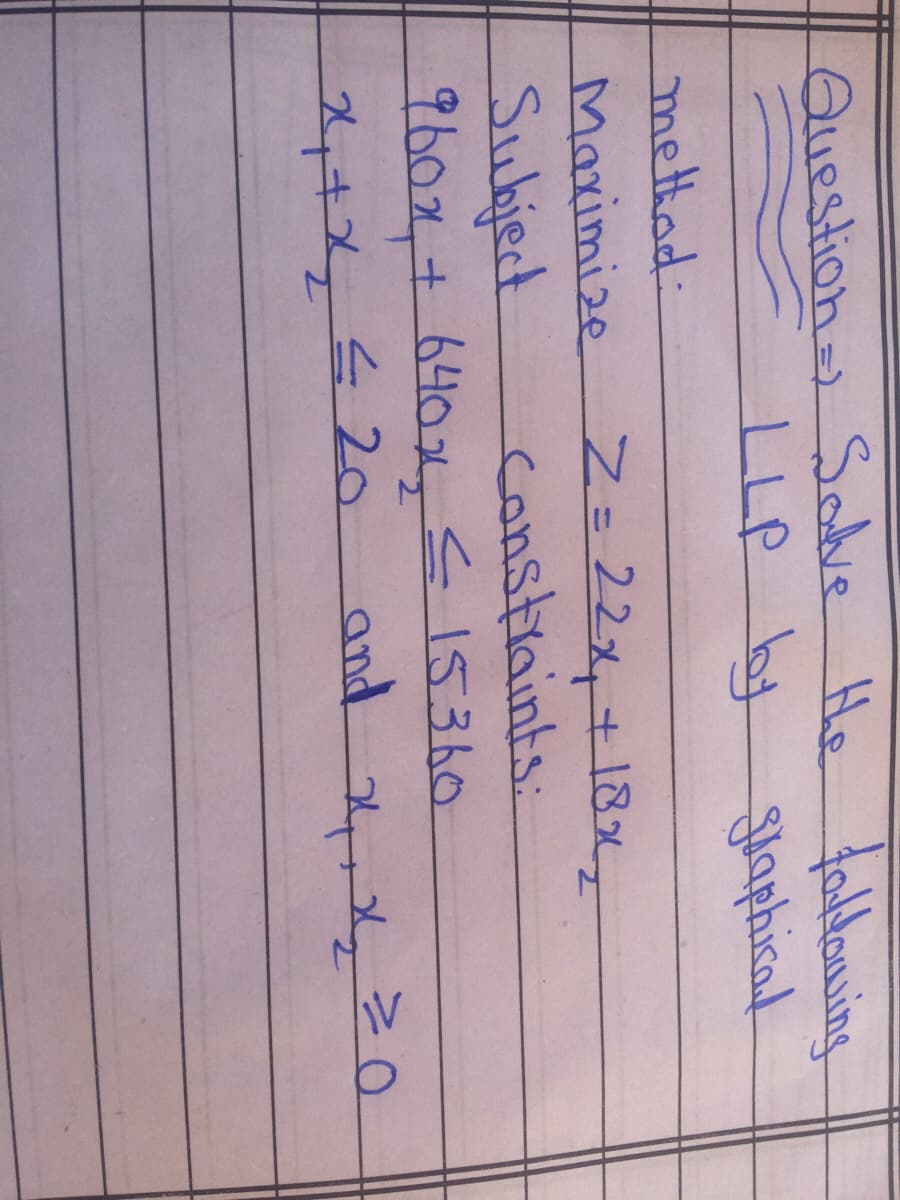 Question => Solve the following
LLP by graphical
method:
Maximize Z = 22x₁ + 18x₂
Subject constraints:
960x₁ + 640x₂ ≤ 15360
x₁ + x₂ ≤ 20 and x₁, x₂ ≥ 0